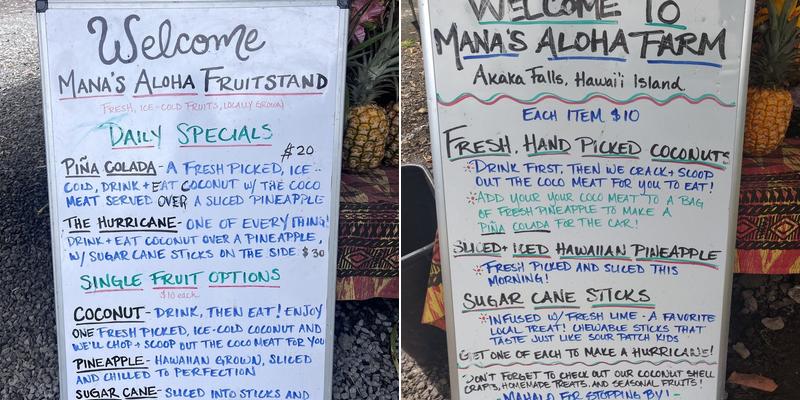 Welcome
MANA'S ALOHA FRUITSTAND
(FRESH, ICE-COLD FRUITS, LOCALLY GROWN)
DAILY SPECIALS
$20
PIÑA COLADA - A FRESH PICKED, ICE-
COLD, DRINK + EAT COCONUT W/ THE COCO
MEAT SERVED OVER A SLICED PINEAPPLE
THE HURRICANE - ONE OF EVERYTHING!
DRINK + EAT COCONUT OVER A PINEAPPLE,
W/ SUGAR CANE STICKS ON THE SIDE $30
SINGLE FRUIT OPTIONS
$10 each
COCONUT - DRINK, THEN EAT! ENJOY
ONE FRESH PICKED, ICE-COLD COCONUT AND
WE'LL CHOP + SCOOP OUT THE COCO MEAT FOR YOU
PINEAPPLE - HAWAIIAN GROWN, SLICED
AND CHILLED TO PERFECTION
SUGAR CANE - SLICED INTO STICKS AND
WELCOME TO
MANA'S ALOHA FARM
Akaka Falls, Hawai'i Island
EACH ITEM $10
FRESH, HAND PICKED COCONUTS
DRINK FIRST, THEN WE CRACK + SCOOP
OUT THE COCO MEAT FOR YOU TO EAT!
ADD YOUR YOUR COCO MEAT TO A BAG
OF FRESH PINEAPPLE TO MAKE A
PIÑA COLADA FOR THE CAR!
SLICED + ICED HAWAIIAN PINEAPPLE
FRESH PICKED AND SLICED THIS
MORNING!
SUGAR CANE STICKS
INFUSED W/ FRESH LIME - A FAVORITE
LOCAL TREAT! CHEWABLE STICKS THAT
TASTE JUST LIKE SOUR PATCH KIDS
GET ONE OF EACH TO MAKE A HURRICANE!
DON'T FORGET TO CHECK OUT OUR COCONUT SHELL
CRAFTS, HOMEMADE TREATS, AND SEASONAL FRUITS!
- MAHALO FOR STOPPING BY! -